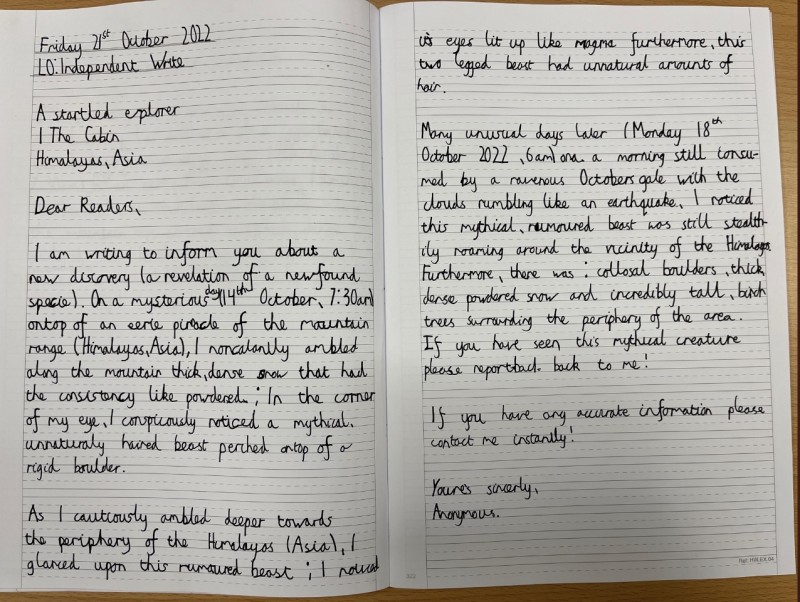 Friday 21st October 2022
LO: Independent Write
A startled explorer
1 The Cabin
Himalayas, Asia
Dear Readers,
I am writing to inform you about a
new discovery (a revelation of a newfound
specie). On a mysterious day (14th October, 7:30am)
ontop of an eerie pinacle of the mountain
range (Himalayas, Asia), I noncalantly ambled
along the mountain thick, dense snow that had
the consistency like powdered. ; In the corner
of my eye, I conspicously noticed a mythical,
unnaturaly haired beast perched ontop of a
rigid boulder.
As I cautiously ambled deeper towards
the periphery of the Himalayas (Asia), I
glanced upon this rumoured beast ; I noticed
its eyes lit up like magma furthermore, this
two legged beast had unnatural amounts of
hair.
Many unusual days later (Monday 18th
October 2022, 6am) a morning still consu-
med by a ravenous Octobers gale with the
clouds rumbling like an earthquake, I noticed
this mythical, rumoured beast was still stealth-
ily roaming around the vicinity of the Himalayas.
Furthermore, there was : collosal boulders, thick,
dense powdered snow and incredibly tall, birch
trees surrarding the periphery of the area.
If you have seen this mythical creature
please report back to me!
If you have any accurate information please
contact me instantly!
Youres sincerly,
Anonymous.